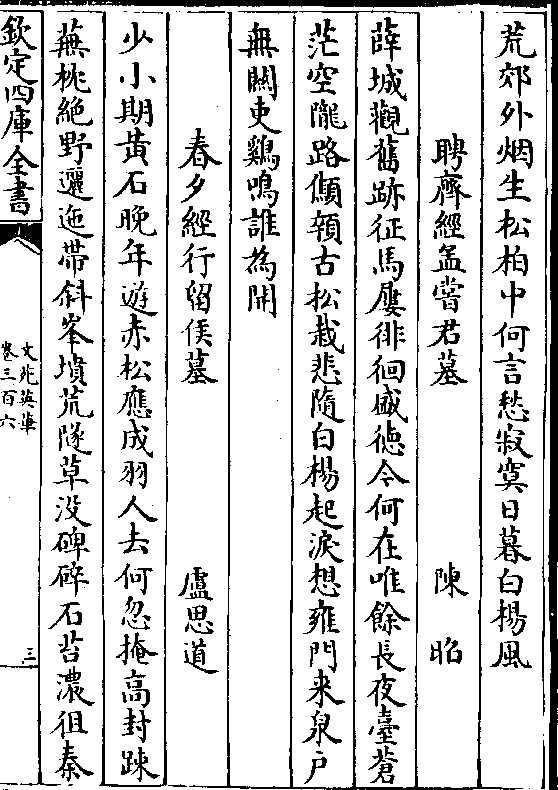 荒郊外烟生松柏中何言愁寂寞日暮白楊風
聘齊經孟嘗君墓 陳昭
薛城觀舊跡征馬屢徘徊盛徳今何在唯餘長夜臺蒼
茫空隴路顦顇古松栽悲隨白楊起淚想雍門来泉户
無關吏鷄鳴誰為開
春夕經行留侯墓 盧思道
少小期黄石晚年遊赤松應成羽人去何忽掩高封疎
蕪枕絶野邐迤帶斜峯墳荒隧草没碑碎石苔濃徂秦
欽定四庫全書
文苑英華
卷三百六
三